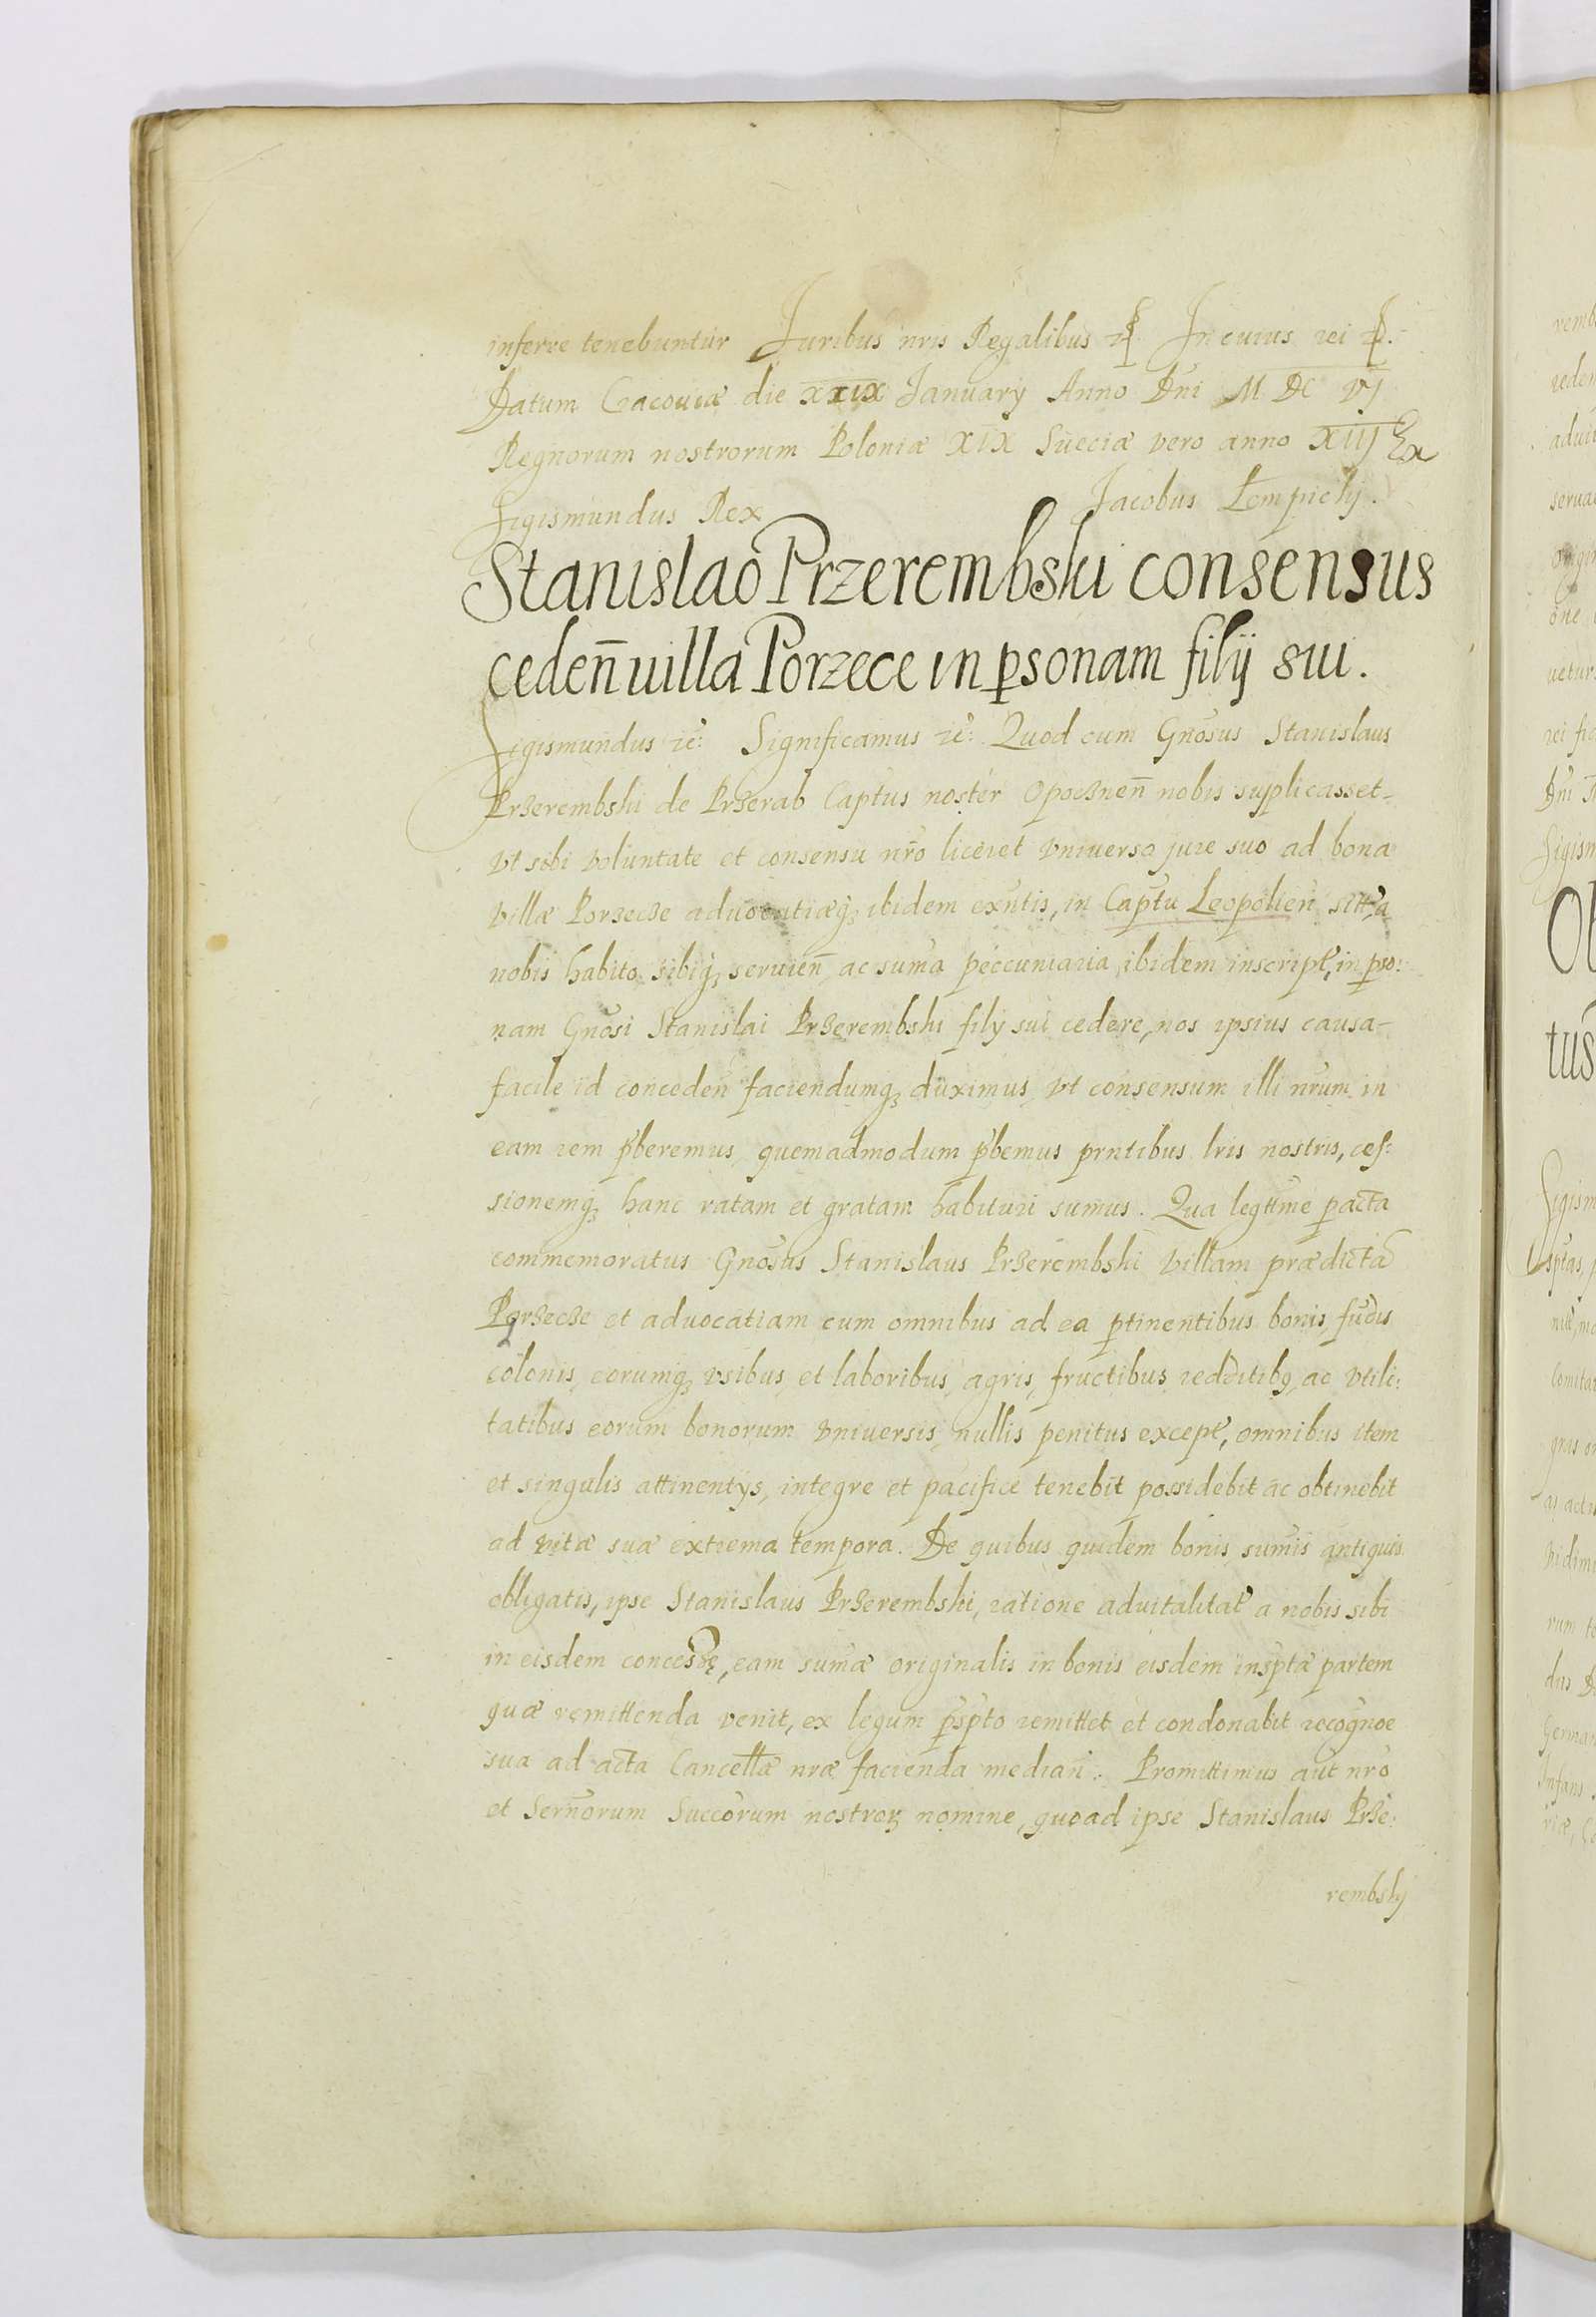 inferre tenebuntur Juribus nris Regalibus In cuius rei
Datum Cracouiæ die XXIX January Anno Dni M DC VJ
Regnorum nostrorum Poloniæ XIX Sueciæ vero anno XIIJ
Sigismundus Rex Jacobus Łempicky.
Stanislao Przerembski consensus
ceden̄ uilla Porzece in ꝑsonam filij sui.
Sigismundus zc: Significamus zc: Quod cum Gnosus Stanislaus
Przerembski de Przerab Captus noster Opocznen̄ nobis suplicasset
vt sibi voluntate et consensu nro liceret vniverso jure suo ad bona
villæ Porzecze aduocatiæq; ibidem exntis, in Captu Leopolien̄ a
nobis habito sibiq; seruien̄ ac suma peccuniaria ibidem inscript, in pso:
nam Gnosi Stanislai Przerembski fily sui cedere, nos ipsius causa
facile id conceden̄ faciendumq; duximus vt consensum illi nrum in
eam rem pberemus, quemadmodum pbemus prntibus lris nostris, ces:
sionemq; hanc ratam et gratam habituri sumus. Qua legttme pacta
commemoratus Gnosus Stanislaus Przerembski villam prædicta
Porzecze et aduocatiam cum omnibus ad ea ptinentibus bonis, fudis
colonis, eorumq; vsibus, et laboribus, agris, fructibus redditibq, ac vtili:
tatibus eorum bonorum vniuersis, nullis penitus except, omnibus item
et singulis attinentys, integre et pacifice tenebit possidebit ac obtinebit
ad vitæ suæ extrema tempora. De quibus quidem bonis sumis antiquis
obligatis, ipse Stanislaus Przerembski, ratione aduitalitat a nobis sibi
in eisdem eam sumæ originalis in bonis eisdem insptæ partem
quæ remittenda venit, ex legum pspto remittet et condonabit recognoe
sua ad acta Cancellæ nræ facienda median̄. Promittimus aut nro
et Sernorum Succorum nostroꝝ nomine, quoad ipse Stanislaus Prze:
rembsky